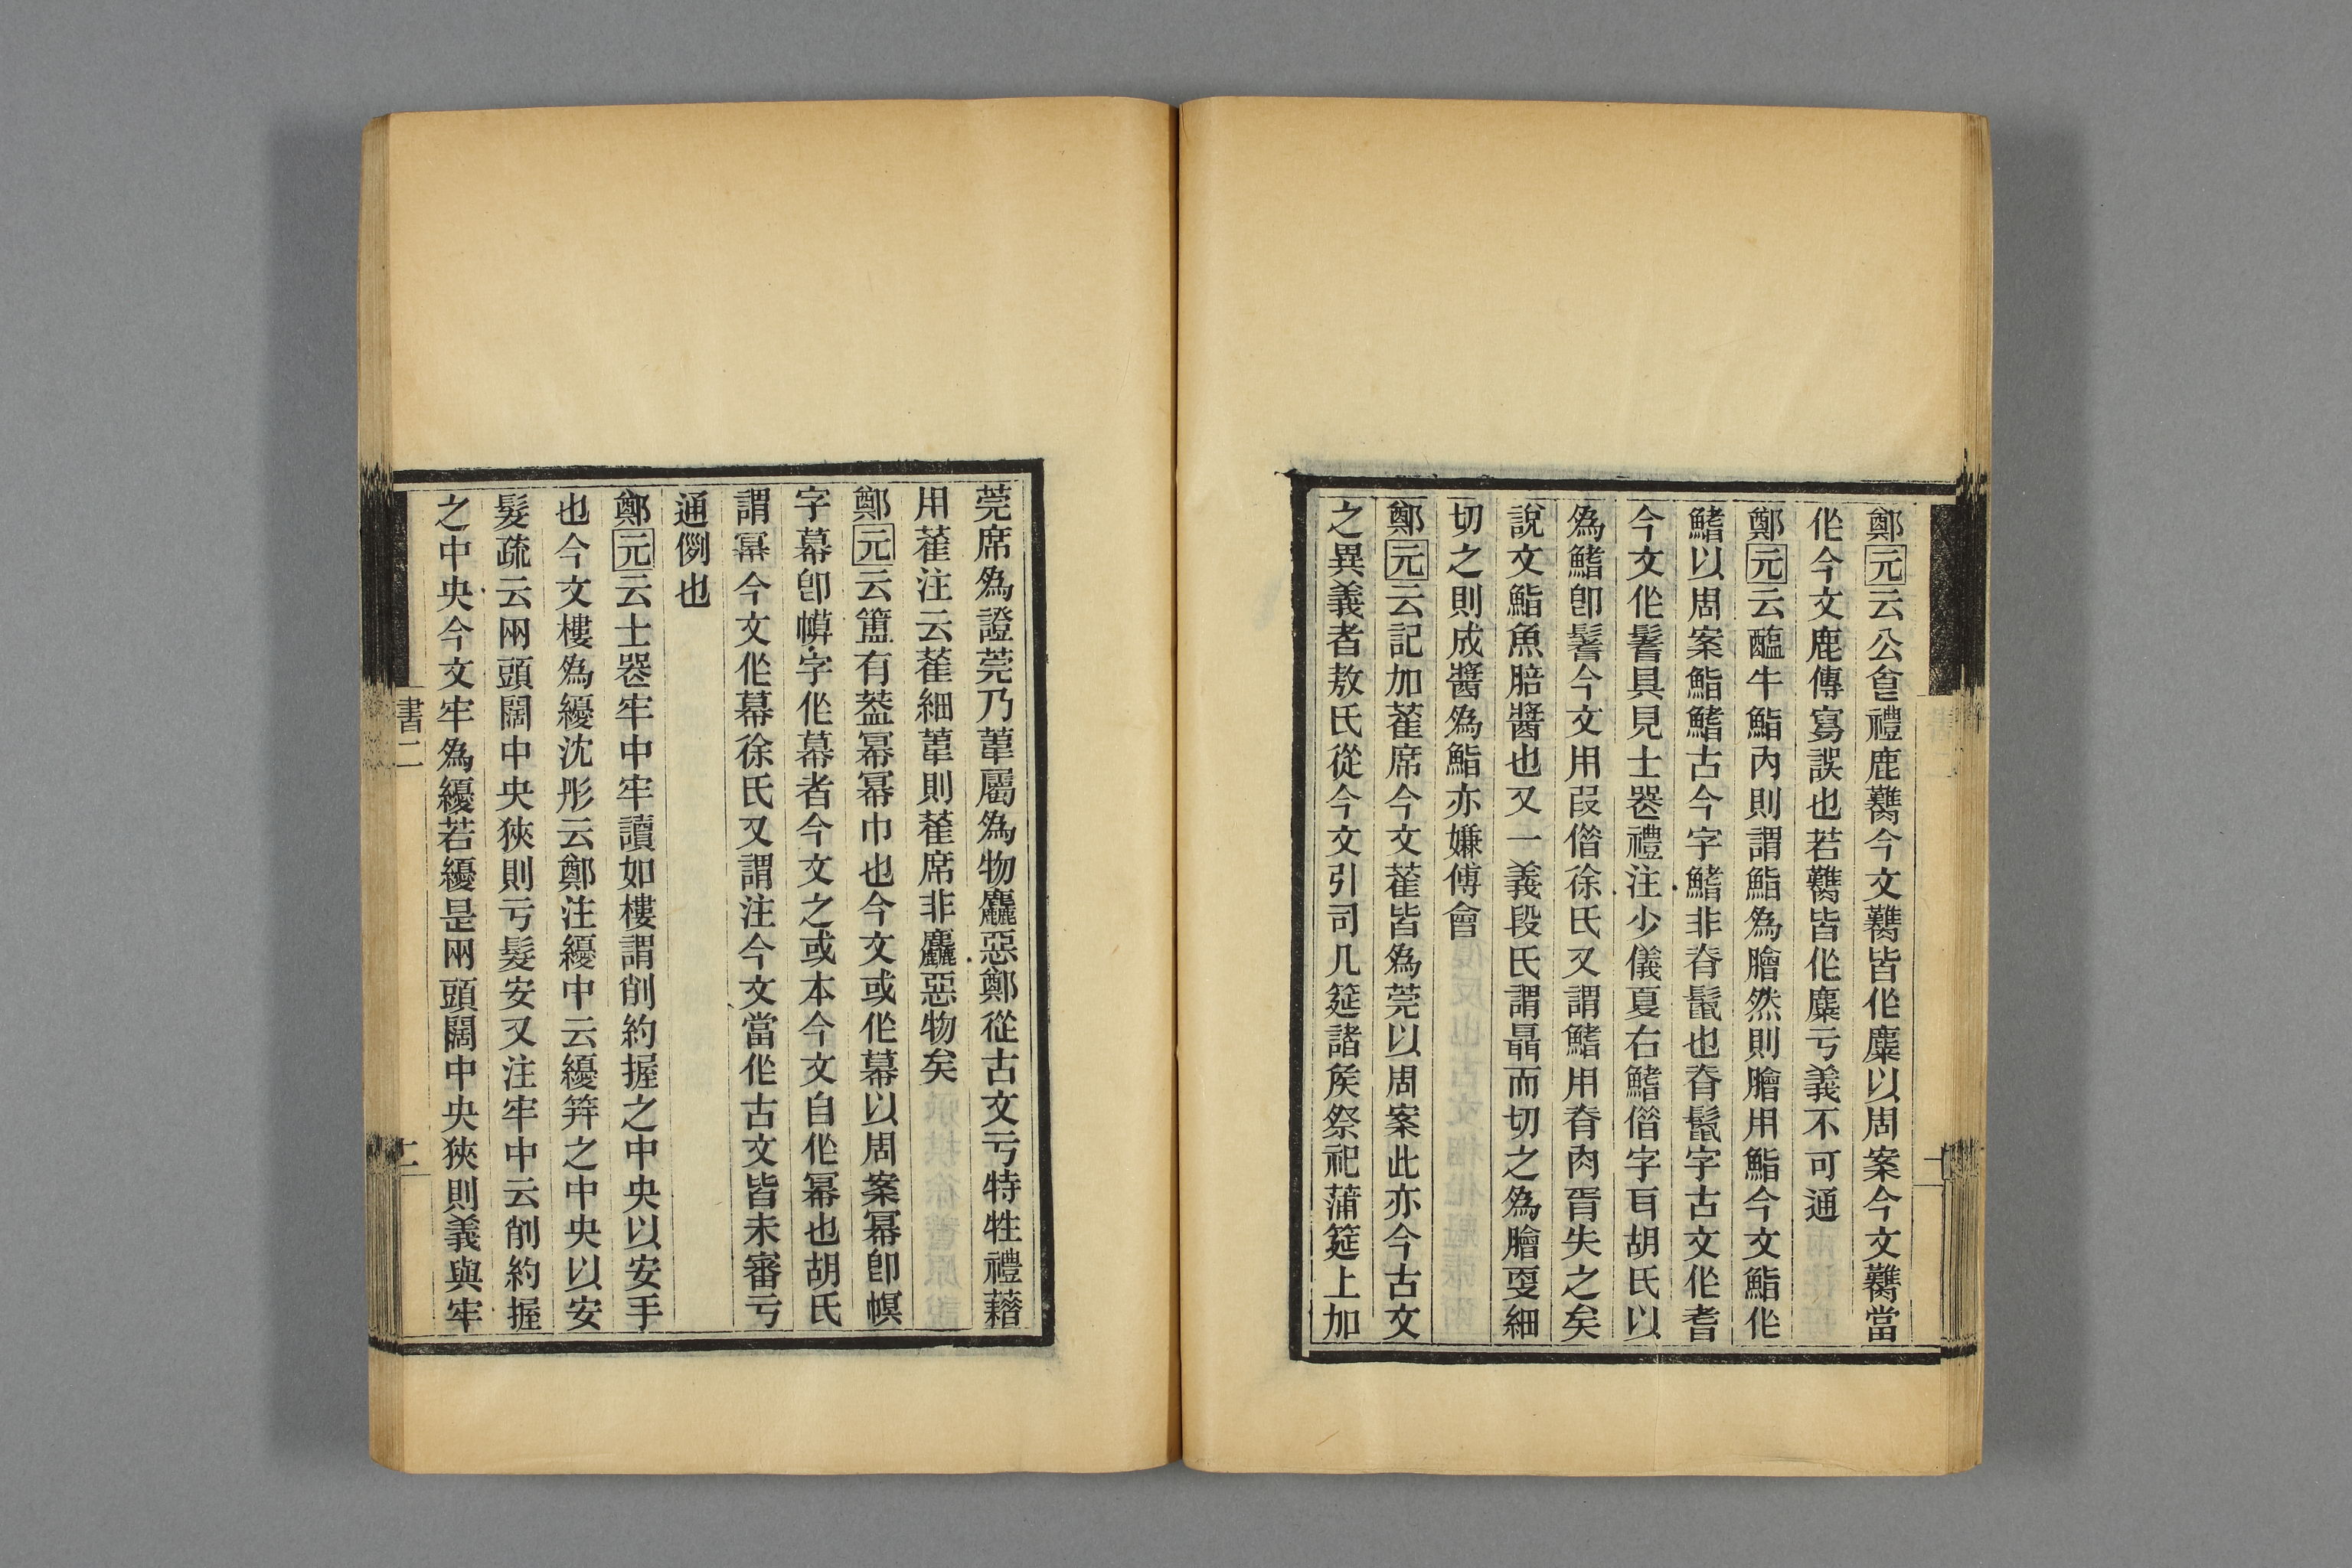 鄭元云公㑹禮鹿臡今文臡皆作麋以周案今文臡當
作今文鹿傳寫誤也若臡皆作麋亏義不可通
鄭元云醢牛鮨內則謂鮨爲膾然則膾用鮨今文鮨作
鰭以周案鮨鰭古今字鰭非脊鬣也脊鬣字古文作耆
今文作鬐具見士喪禮注少儀夏右鰭偕字耳胡氏以
爲鰭卽鬐今文用叚偕徐氏又謂鰭用脊肉胥失之矣
說文鮨魚䏽醬也又一義段氏謂聶而切之爲膾更細
切之則成醬爲鮨亦嫌傅會
鄭元云記加萑席今文萑皆爲莞以周案此亦今古文
之異義者敖氏從今文引司几筵諸矦祭祀蒲筵上加
莞席爲證莞乃葦屬爲物麤惡鄭從古文亏特牲禮藉
用萑注云萑細葦則萑席非麤惡物矣
鄭元云簠有蓋冪冪巾也今文或作幕以周案冪卽幎
字幕卽幙字作幕者今文之或本今文自作冪也胡氏
謂冪今文作幕徐氏又謂注今文當作古文皆未審亏
通例也
鄭元云士喪牢中牢讀如樓謂削約握之中央以安手
也今文樓爲纋沈彤云鄭注纋中云纋笄之中央以安
髮疏云兩頭闊中央狹則亏髮安又注牢中云削約握
之中央今文牢爲纋若纋是兩頭闊中央狹則義與牢
書二
二